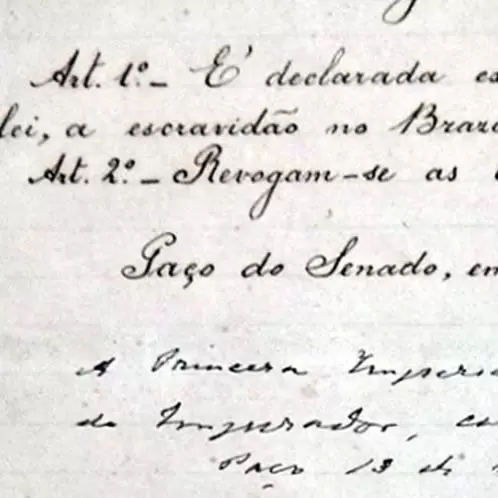 Art. 1º - É declarada es
lei, a escravidão no Braz
Art. 2º - Revogam-se as
Paço do Senado, em
A Princesa Imperia
do Imperador, 
Paço 13 de